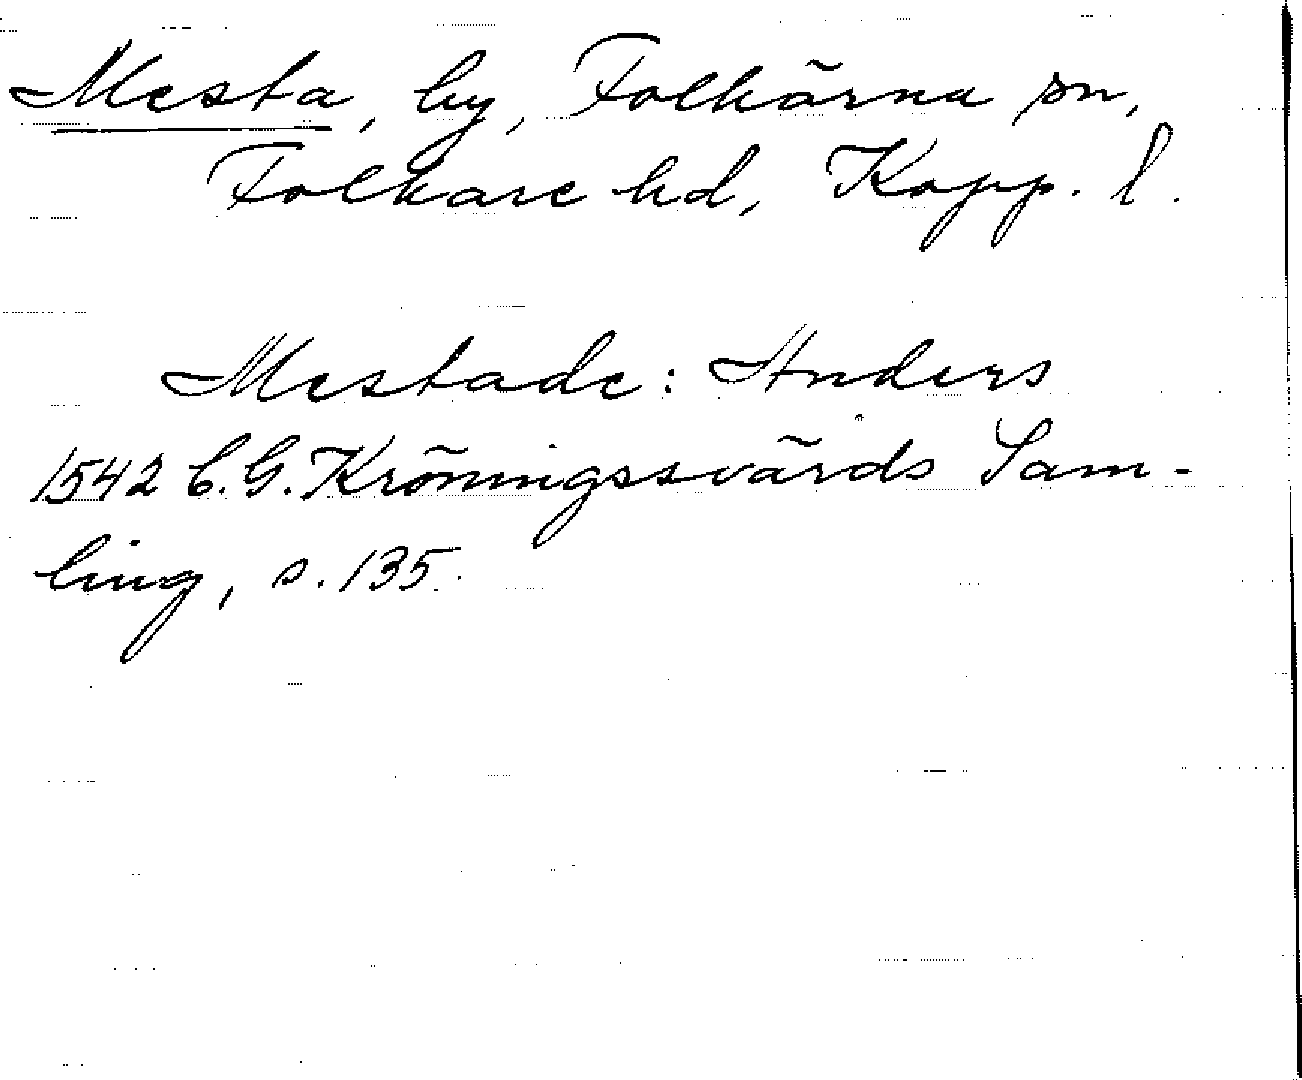 Mesta, by, Folkärna sn,
Folkare hd, Kopp. l.
Mestade: Anders
1542 C.G. Kröningssvärds Sam-
ling, s. 135.